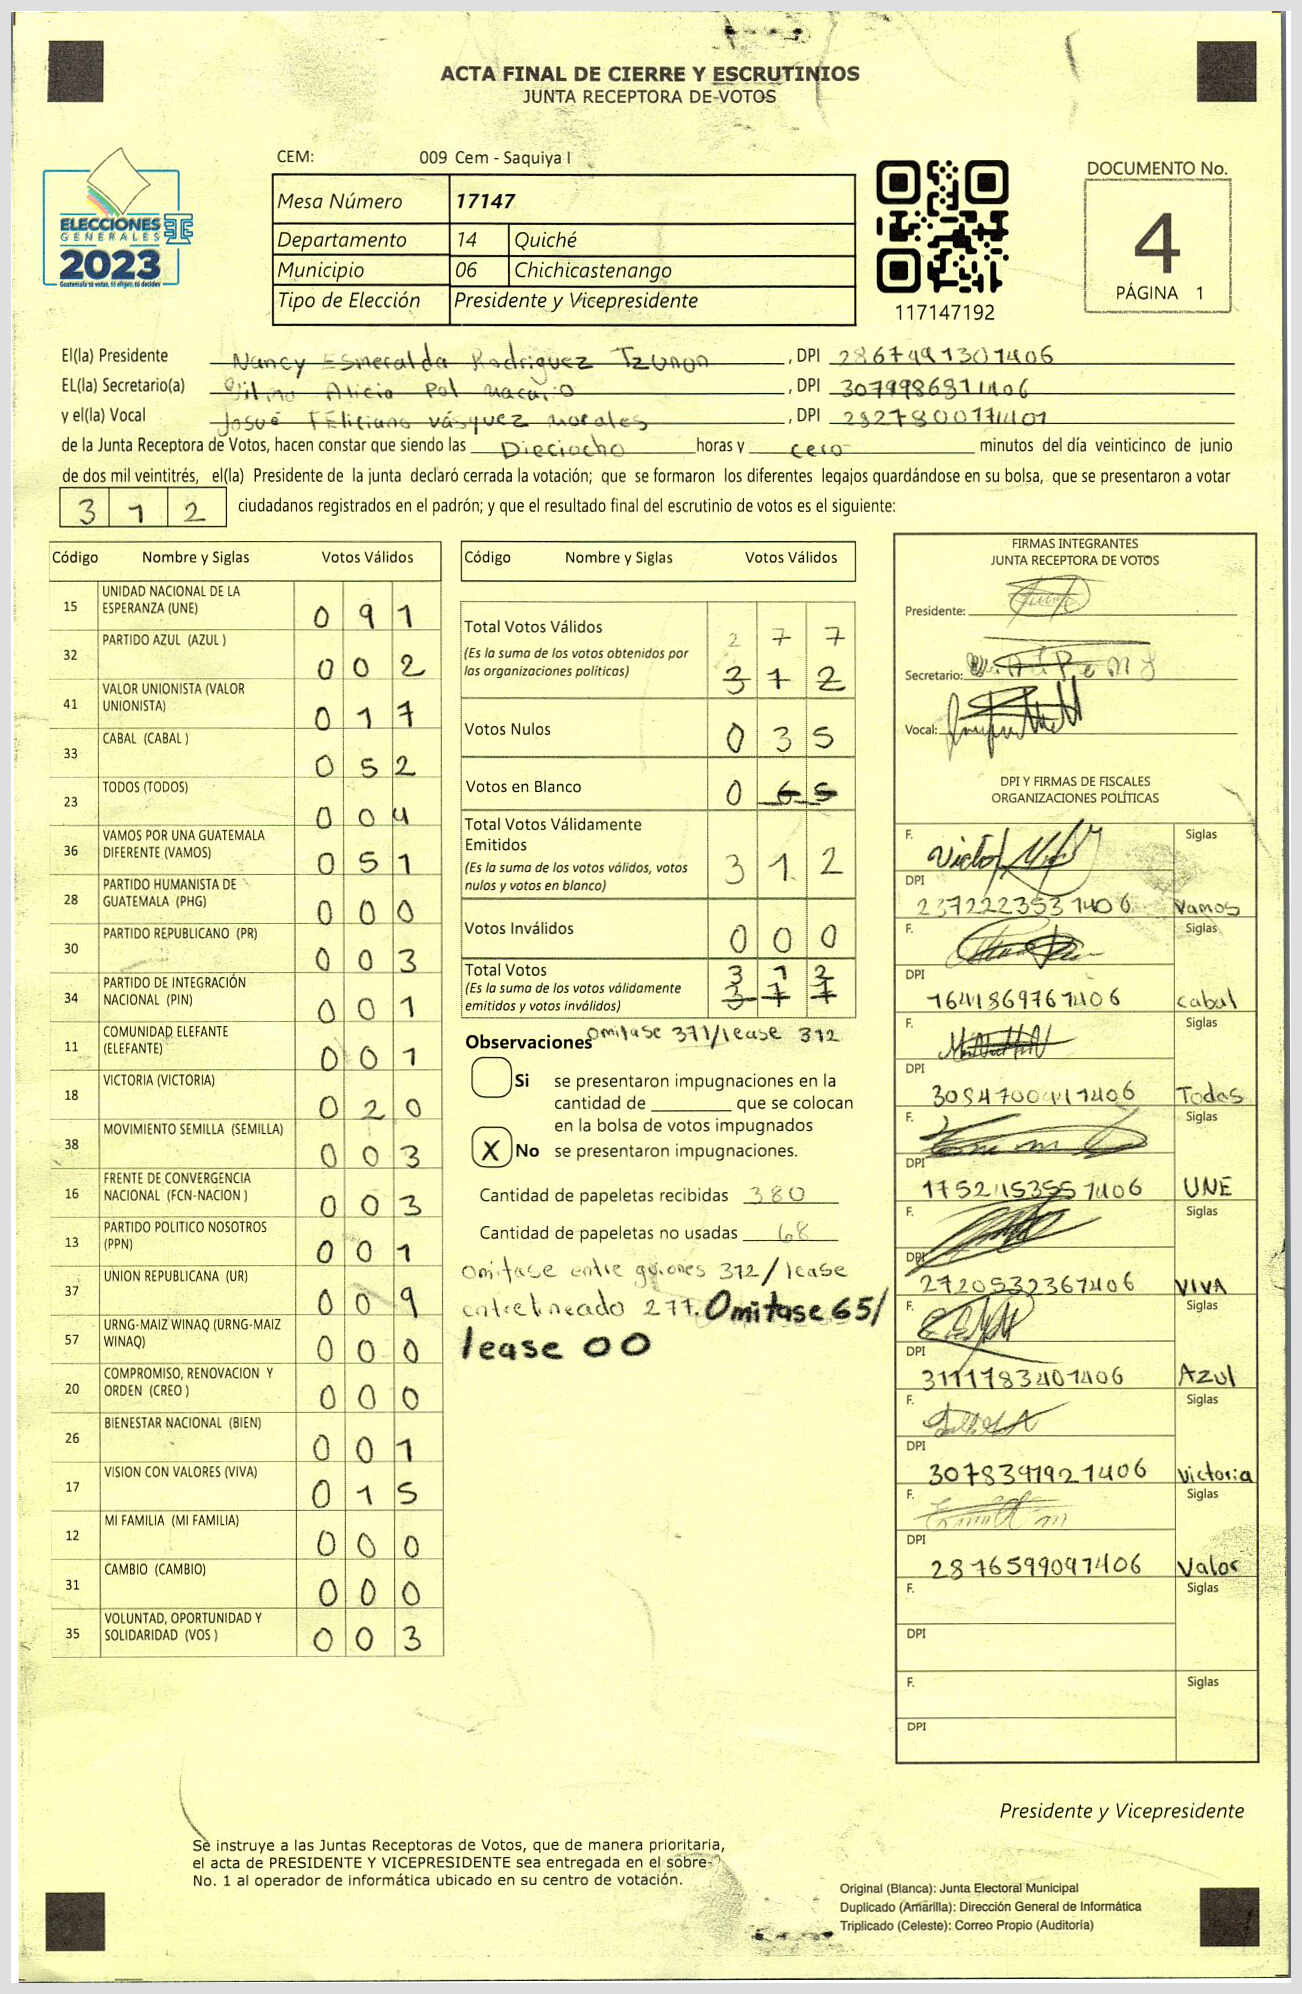 ACTA FINAL DE CIERRE Y ESCRUTINIOS
JUNTA RECEPTORA DE VOTOS
CEM: 009 Cem - Saquiya I
DOCUMENTO No.
4
PÁGINA 1
ELECCIONES
GENERALES
2023
Guatemala tú votas, tú eliges, tú decides
Mesa Número 17147
Departamento 14 Quiché
Municipio 06 Chichicastenango
Tipo de Elección Presidente y Vicepresidente
117147192
El(la) Presidente Nancy Esmeralda Rodriguez Tzunun, DPI
EL(la) Secretario(a) Alicia Pol Macario, DPI
y el(la) Vocal Josué Feliciano Vásquez Morales, DPI
de la Junta Receptora de Votos, hacen constar que siendo las Dieciocho horas y cero minutos del día veinticinco de junio
de dos mil veintitrés, el(la) Presidente de la junta declaró cerrada la votación; que se formaron los diferentes legajos guardándose en su bolsa, que se presentaron a votar
312 ciudadanos registrados en el padrón; y que el resultado final del escrutinio de votos es el siguiente:
Código Nombre y Siglas Votos Válidos
15 UNIDAD NACIONAL DE LA ESPERANZA (UNE) 091
32 PARTIDO AZUL (AZUL ) 002
41 VALOR UNIONISTA (VALOR UNIONISTA) 017
33 CABAL (CABAL ) 052
23 TODOS (TODOS) 004
36 VAMOS POR UNA GUATEMALA DIFERENTE (VAMOS) 051
28 PARTIDO HUMANISTA DE GUATEMALA (PHG) 000
30 PARTIDO REPUBLICANO (PR) 003
34 PARTIDO DE INTEGRACIÓN NACIONAL (PIN) 001
11 COMUNIDAD ELEFANTE (ELEFANTE) 001
18 VICTORIA (VICTORIA) 020
38 MOVIMIENTO SEMILLA (SEMILLA) 003
16 FRENTE DE CONVERGENCIA NACIONAL (FCN-NACION ) 003
13 PARTIDO POLITICO NOSOTROS (PPN) 001
37 UNION REPUBLICANA (UR) 009
57 URNG-MAIZ WINAQ (URNG-MAIZ WINAQ) 000
20 COMPROMISO, RENOVACION Y ORDEN (CREO ) 000
26 BIENESTAR NACIONAL (BIEN) 001
17 VISION CON VALORES (VIVA) 015
12 MI FAMILIA (MI FAMILIA) 000
31 CAMBIO (CAMBIO) 000
35 VOLUNTAD, OPORTUNIDAD Y SOLIDARIDAD (VOS ) 003
Código Nombre y Siglas Votos Válidos
Total Votos Válidos 277
(Es la suma de los votos obtenidos por
las organizaciones políticas) 312
Votos Nulos 035
Votos en Blanco 0 65
Total Votos Válidamente
Emitidos 312
(Es la suma de los votos válidos, votos
nulos y votos en blanco)
Votos Inválidos 000
Total Votos 312
(Es la suma de los votos válidamente
emitidos y votos inválidos) 377
Observaciones omitase 371/lease 312
Si se presentaron impugnaciones en la
cantidad de ________ que se colocan
en la bolsa de votos impugnados
X No se presentaron impugnaciones.
Cantidad de papeletas recibidas 380
Cantidad de papeletas no usadas 68
omitase entre guiones 312/lease
entrelineado 277. Omitase 65/
lease 00
FIRMAS INTEGRANTES
JUNTA RECEPTORA DE VOTOS
Presidente:
Secretario:
Vocal:
DPI Y FIRMAS DE FISCALES
ORGANIZACIONES POLÍTICAS
F. Victor Siglas
DPI 2372223531406 Vamos
F. Siglas
DPI 1641869761406 Cabal
F. Siglas
DPI Todos
F. Siglas
DPI UNE
F. Siglas
DPI 2720532367406 VIVA
F. Siglas
DPI 3111783401406 Azul
F. Siglas
DPI 3078391921406 Victoria
F. Siglas
DPI 2876599091406 Valor
F. Siglas
DPI
F. Siglas
DPI
Presidente y Vicepresidente
Se instruye a las Juntas Receptoras de Votos, que de manera prioritaria,
el acta de PRESIDENTE Y VICEPRESIDENTE sea entregada en el sobre
No. 1 al operador de informática ubicado en su centro de votación.
Original (Blanca): Junta Electoral Municipal
Duplicado (Amarilla): Dirección General de Informática
Triplicado (Celeste): Correo Propio (Auditoría)